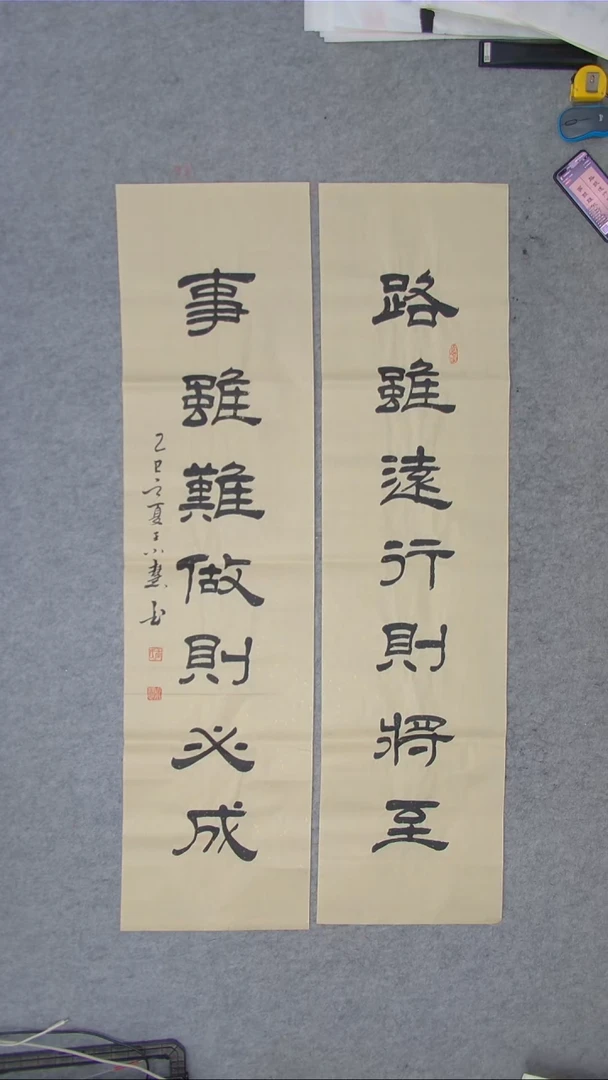 路雖遠行則將至
事雖難做則必成
乙巳之夏